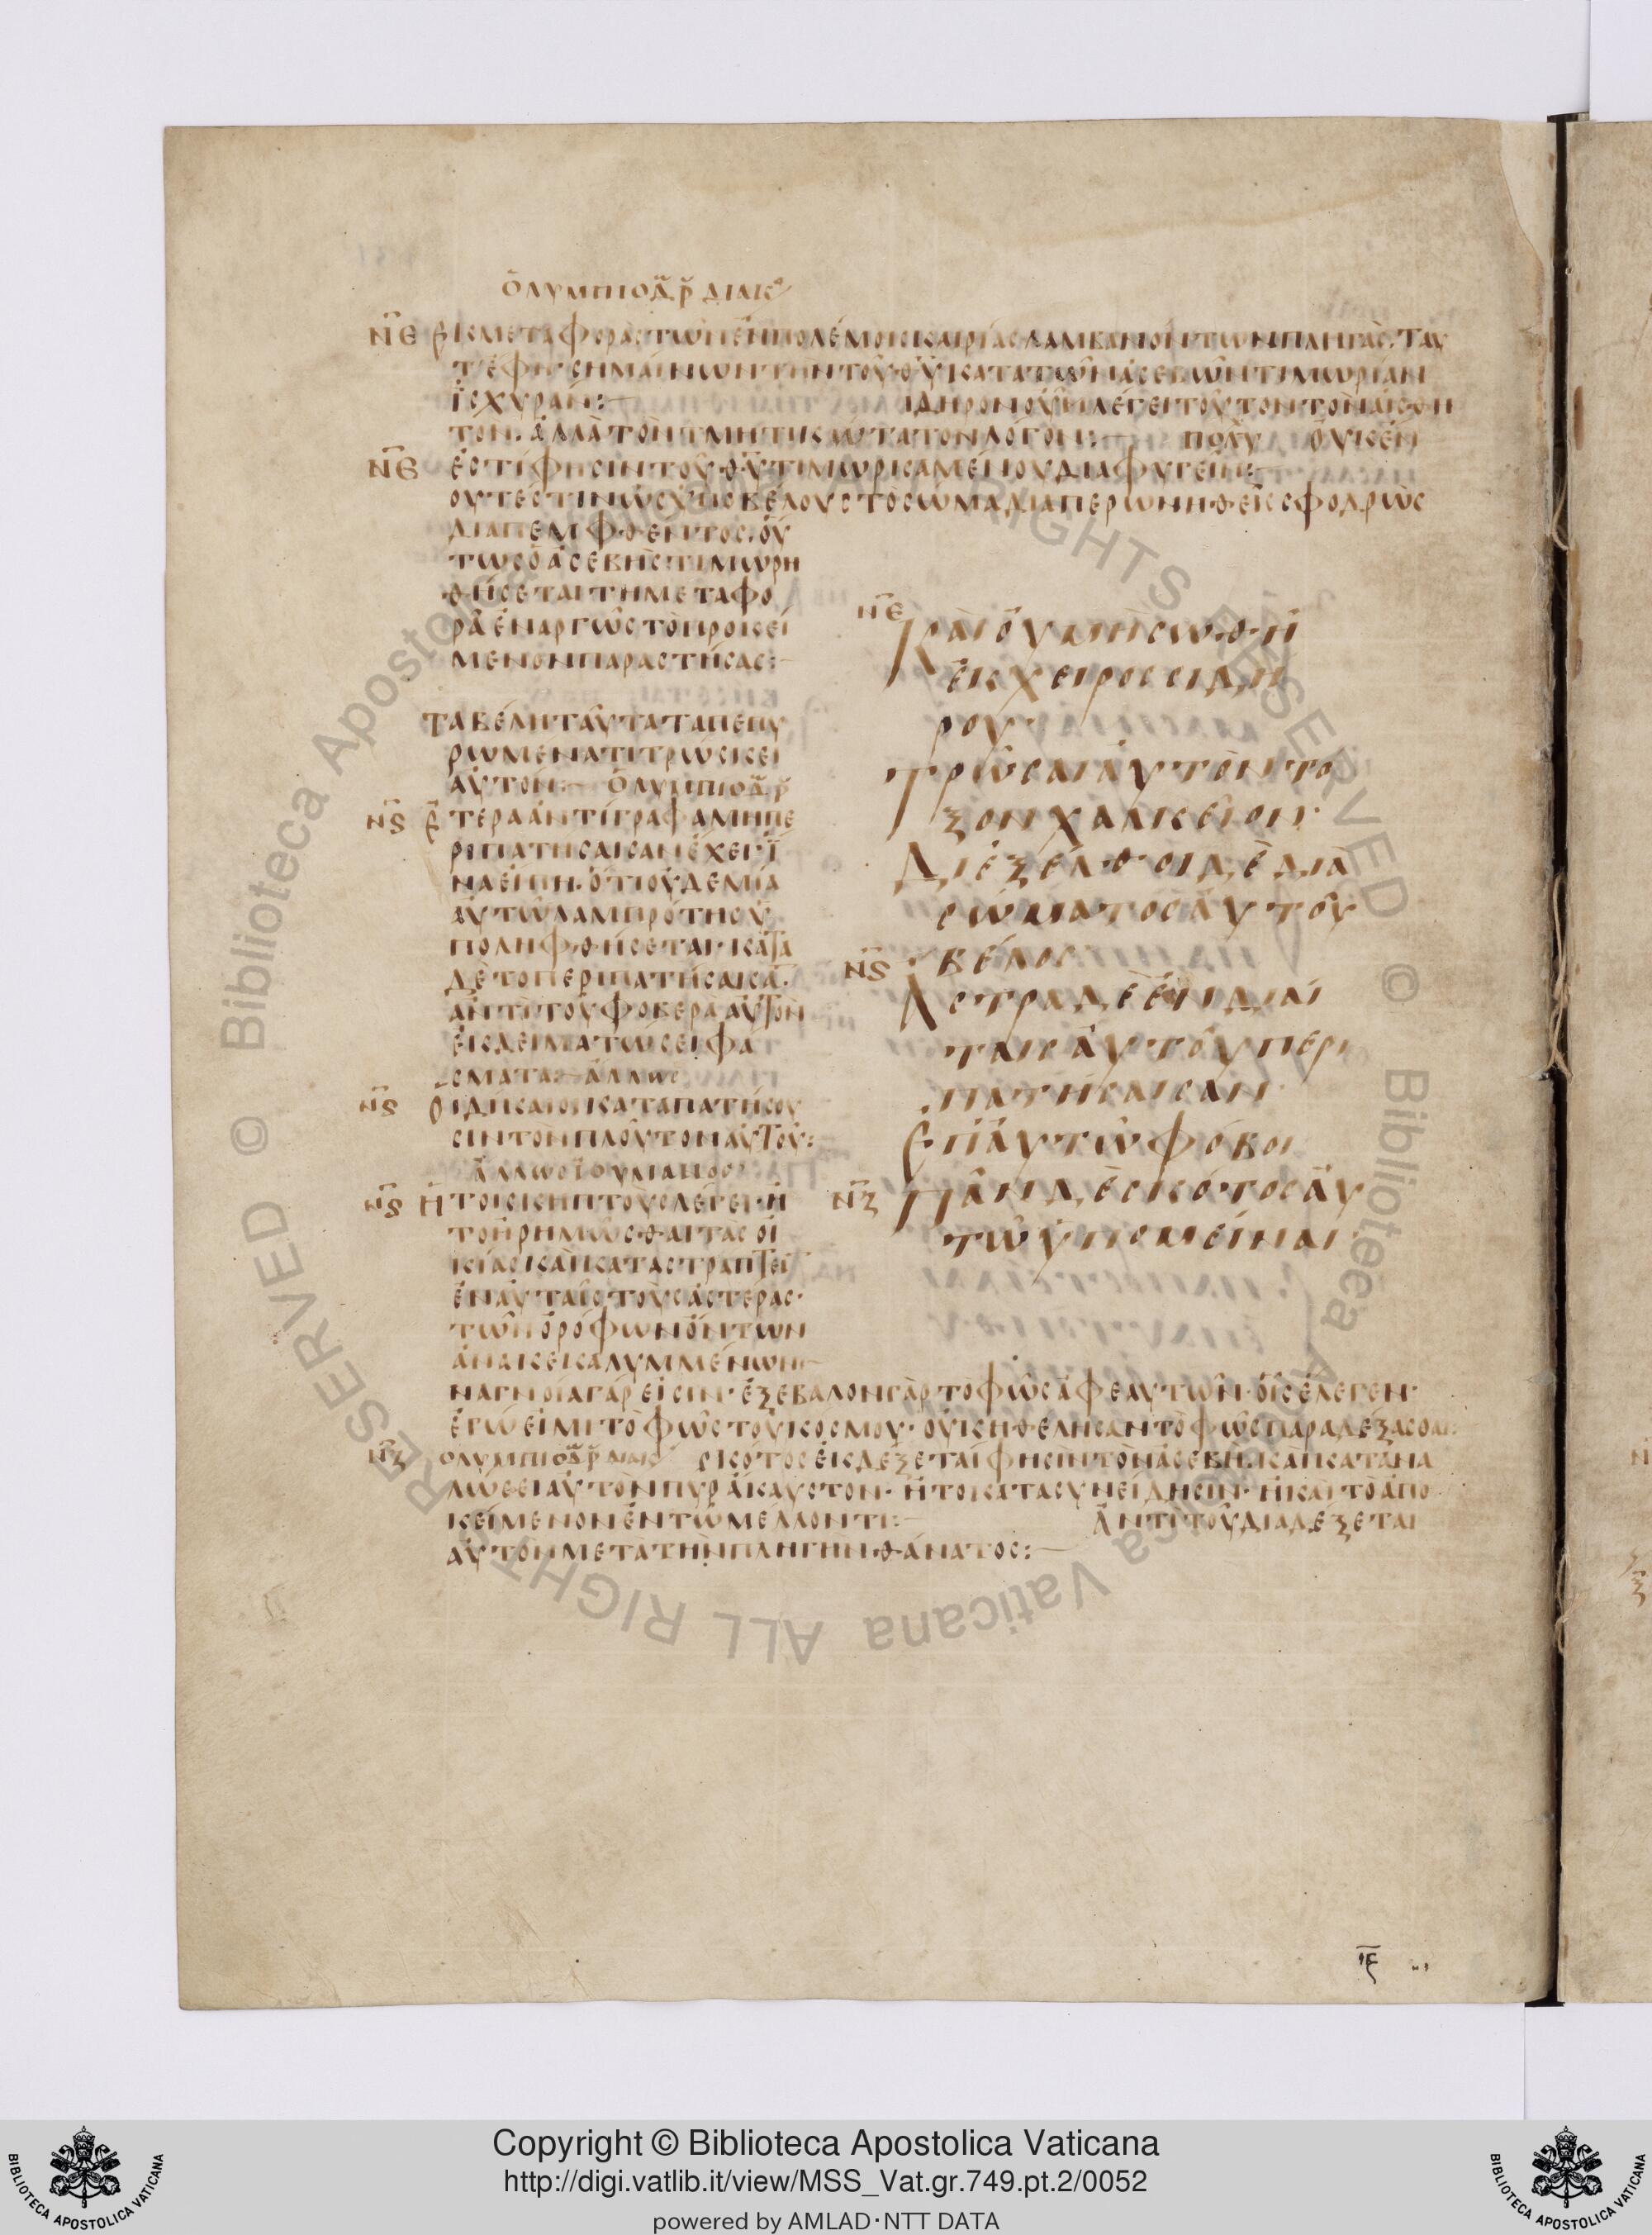 ὈΛΥΜΠΙΟΔΡ ΔΙΑΚ
ΝΕ ΕΚ ΜΕΤΑΦΟΡΑΣ ΤΩΝ ΕΝ ΠΟΛΕΜΟΙΣ ΚΑΙΡΙΑΣ ΛΑΜΒΑΝΟΝΤΩΝ ΠΛΗΓΑΣ. ΤΑΥ
Τ ΕΦΗ ΣΗΜΑΙΝΩΝ ΤΗΝ ΤΟΥ ΘΥ ΚΑΤΑ ΤΩΝ ΑΣΕΒΩΝ ΤΙΜΩΡΙΑΝ
ΙΣΧΥΡΑΝ:— ΣΙΔΗΡΟΝ ΟΥΝ ΛΕΓΕΙ ΤΟΥΤΟΝ ΤΟΝ ΑΙΣΘΗ
ΤΟΝ. ΑΛΛΑ ΤΟΝ ΤΜΗΤΙΚΩΤΑΤΟΝ ΛΟΓΟΝ:— ΠΟΛΥ ΟΥΚ ΕΝ
ΝΕ ΕΣΤΙ ΦΗΣΙΝ ΤΟΥ ΘΥ ΤΙΜΩΡΗΣΑΜΕΝΟΥ ΔΙΑΦΥΓΕΙΝ:—
ΟΥΤΕΣΤΙΝ ΩΣ ΥΠΟ ΒΕΛΟΥΣ ΤΟ ΣΩΜΑ ΔΙΑΠΕΡΩΝΗΘΕΙΣ ΣΦΟΔΡΩΣ
ΔΙΑΠΕΜΦΘΕΝΤΟΣ. ΟΥ
ΤΩΣ Ο ΑΣΕΒΗΣ ΤΙΜΩΡΗ
ΘΗΣΕΤΑΙ ΤΗ ΜΕΤΑΦΟ
ΡΑ ΕΝΑΡΓΩΣ ΤΟ ΠΡΟΚΕΙ
ΜΕΝΟΝ ΠΑΡΑΣΤΗΣΑΣ:—
ΤΑ ΒΕΛΗ ΤΑΥΤΑ ΤΑ ΠΕΠΥ
ΡΩΜΕΝΑ ΤΙΤΡΩΣΚΕΙ
ΑΥΤΟΝ:— ὈΛΥΜΠΙΟΔΡ
ΝϚ ΕΤΕΡΑ ΑΝΤΙΓΡΑΦΑ ΜΗ ΠΕ
ΡΙΠΑΤΗΣΑΙΣΑΝ ΕΧΕΙ. Ι
ΝΑ ΕΙΠΗ. ΟΤΙ ΟΥΔΕΜΙΑ
ΑΥΤΩ ΛΑΜΠΡΟΤΗΣ Υ
ΠΟΛΗΦΘΗΣΕΤΑΙ. ΚΑΤΑ
ΔΕ ΤΟ ΠΕΡΙΠΑΤΗΣΑΙΣΑ.
ΑΝΤΙ ΤΟΥ ΦΟΒΕΡΑ ΑΥΤΟΝ
ΕΚΔΕΙΜΑΤΩΣΕΙ ΦΑ
ΣΜΑΤΑ:— ΑΛΛΩΣ
ΝϚ ΟΙ ΔΙΚΑΙΟΙ ΚΑΤΑΠΑΤΗΣΟΥ
ΣΙΝ ΤΟΝ ΠΛΟΥΤΟΝ ΑΥΤΟΥ:
ΑΛΛΩΣ ΙΟΥΛΙΑΝΟΣ
ΝϚ ΗΤΟΙ ΣΚΗΠΤΟΥΣ ΛΕΓΕΙ. Η
ΤΟ ΗΡΗΜΩΣΘΑΙ ΤΑΣ ΟΙ
ΚΙΑΣ ΚΑΝ ΚΑΤΑΣΤΡΑΠΤΕΙ
ΕΝ ΑΥΤΑΙΣ ΤΟΥΣ ΑΣΤΕΡΑΣ.
ΤΩΝ ΟΡΟΦΩΝ ΟΝΤΩΝ
ΑΝΑΚΕΚΑΛΥΜΜΕΝΩΝ:—
ΕΞΕΒΑΛΟΝ ΓΑΡ ΤΟ ΦΩΣ ΑΦ ΕΑΥΤΩΝ. ΟΙΣ ΕΛΕΓΕΝ.
ΕΓΩ ΕΙΜΙ ΤΟ ΦΩΣ ΤΟΥ ΚΟΣΜΟΥ. ΟΥΚ ΗΘΕΛΗΣΑΝ ΤΟ ΦΩΣ ΠΑΡΑΔΕΞΑΣΘΑΙ:
ΝΖ ΟΛΥΜΠΙΟΔΡ ΔΙΑΚ ΣΚΟΤΟΣ ΕΚΔΕΞΕΤΑΙ ΦΗΣΙΝ ΤΟΝ ΑΣΕΒΗ. ΚΑΙ ΚΑΤΑΝΑ
ΛΩΣΕΙ ΑΥΤΟΝ ΠΥΡ ΑΚΑΥΣΤΟΝ. ΗΤΟΙ ΚΑΤΑ ΣΥΝΕΙΔΗΣΙΝ. Η ΚΑΙ ΤΟ ΑΠΟ
ΚΕΙΜΕΝΟΝ ΕΝ ΤΩ ΜΕΛΛΟΝΤΙ:— ΑΝΤΙ ΤΟΥ ΔΙΑΔΕΞΕΤΑΙ
ΑΥΤΟΝ ΜΕΤΑ ΤΗΝ ΠΛΗΓΗΝ ΘΑΝΑΤΟΣ:—
ΝΕ ΚΑΙ ΟΥ ΜΗ ΣΩΘΗ
ΕΚ ΧΕΙΡΟΣ ΣΙΔΗ
ΡΟΥ.
ΤΡΩΣΑΙ ΑΥΤΟΝ ΤΟ
ΞΟΝ ΧΑΛΚΕΙΟΝ.
ΔΙΕΞΕΛΘΟΙ ΔΕ ΔΙΑ
ΣΩΜΑΤΟΣ ΑΥΤΟΥ
ΒΕΛΟΣ
ΝϚ ΑΣΤΡΑ ΔΕ ΕΝ ΔΙΑΙ
ΤΑΙΣ ΑΥΤΟΥ ΠΕΡΙ
ΠΑΤΗΣΑΙΣΑΝ
ΕΠ ΑΥΤΩ ΦΟΒΟΙ
ΝΖ ΠΑΝ ΔΕ ΣΚΟΤΟΣ ΑΥ
ΤΩ ΥΠΟΜΕΙΝΑΙ
ΙΕ
Copyright © Biblioteca Apostolica Vaticana
http://digi.vatlib.it/view/MSS_Vat.gr.749.pt.2/0052
powered by AMLAD·NTT DATA
BIBLIOTECA APOSTOLICA VATICANA
BIBLIOTECA APOSTOLICA VATICANA
© Biblioteca Apostolica Vaticana ALL RIGHTS RESERVED